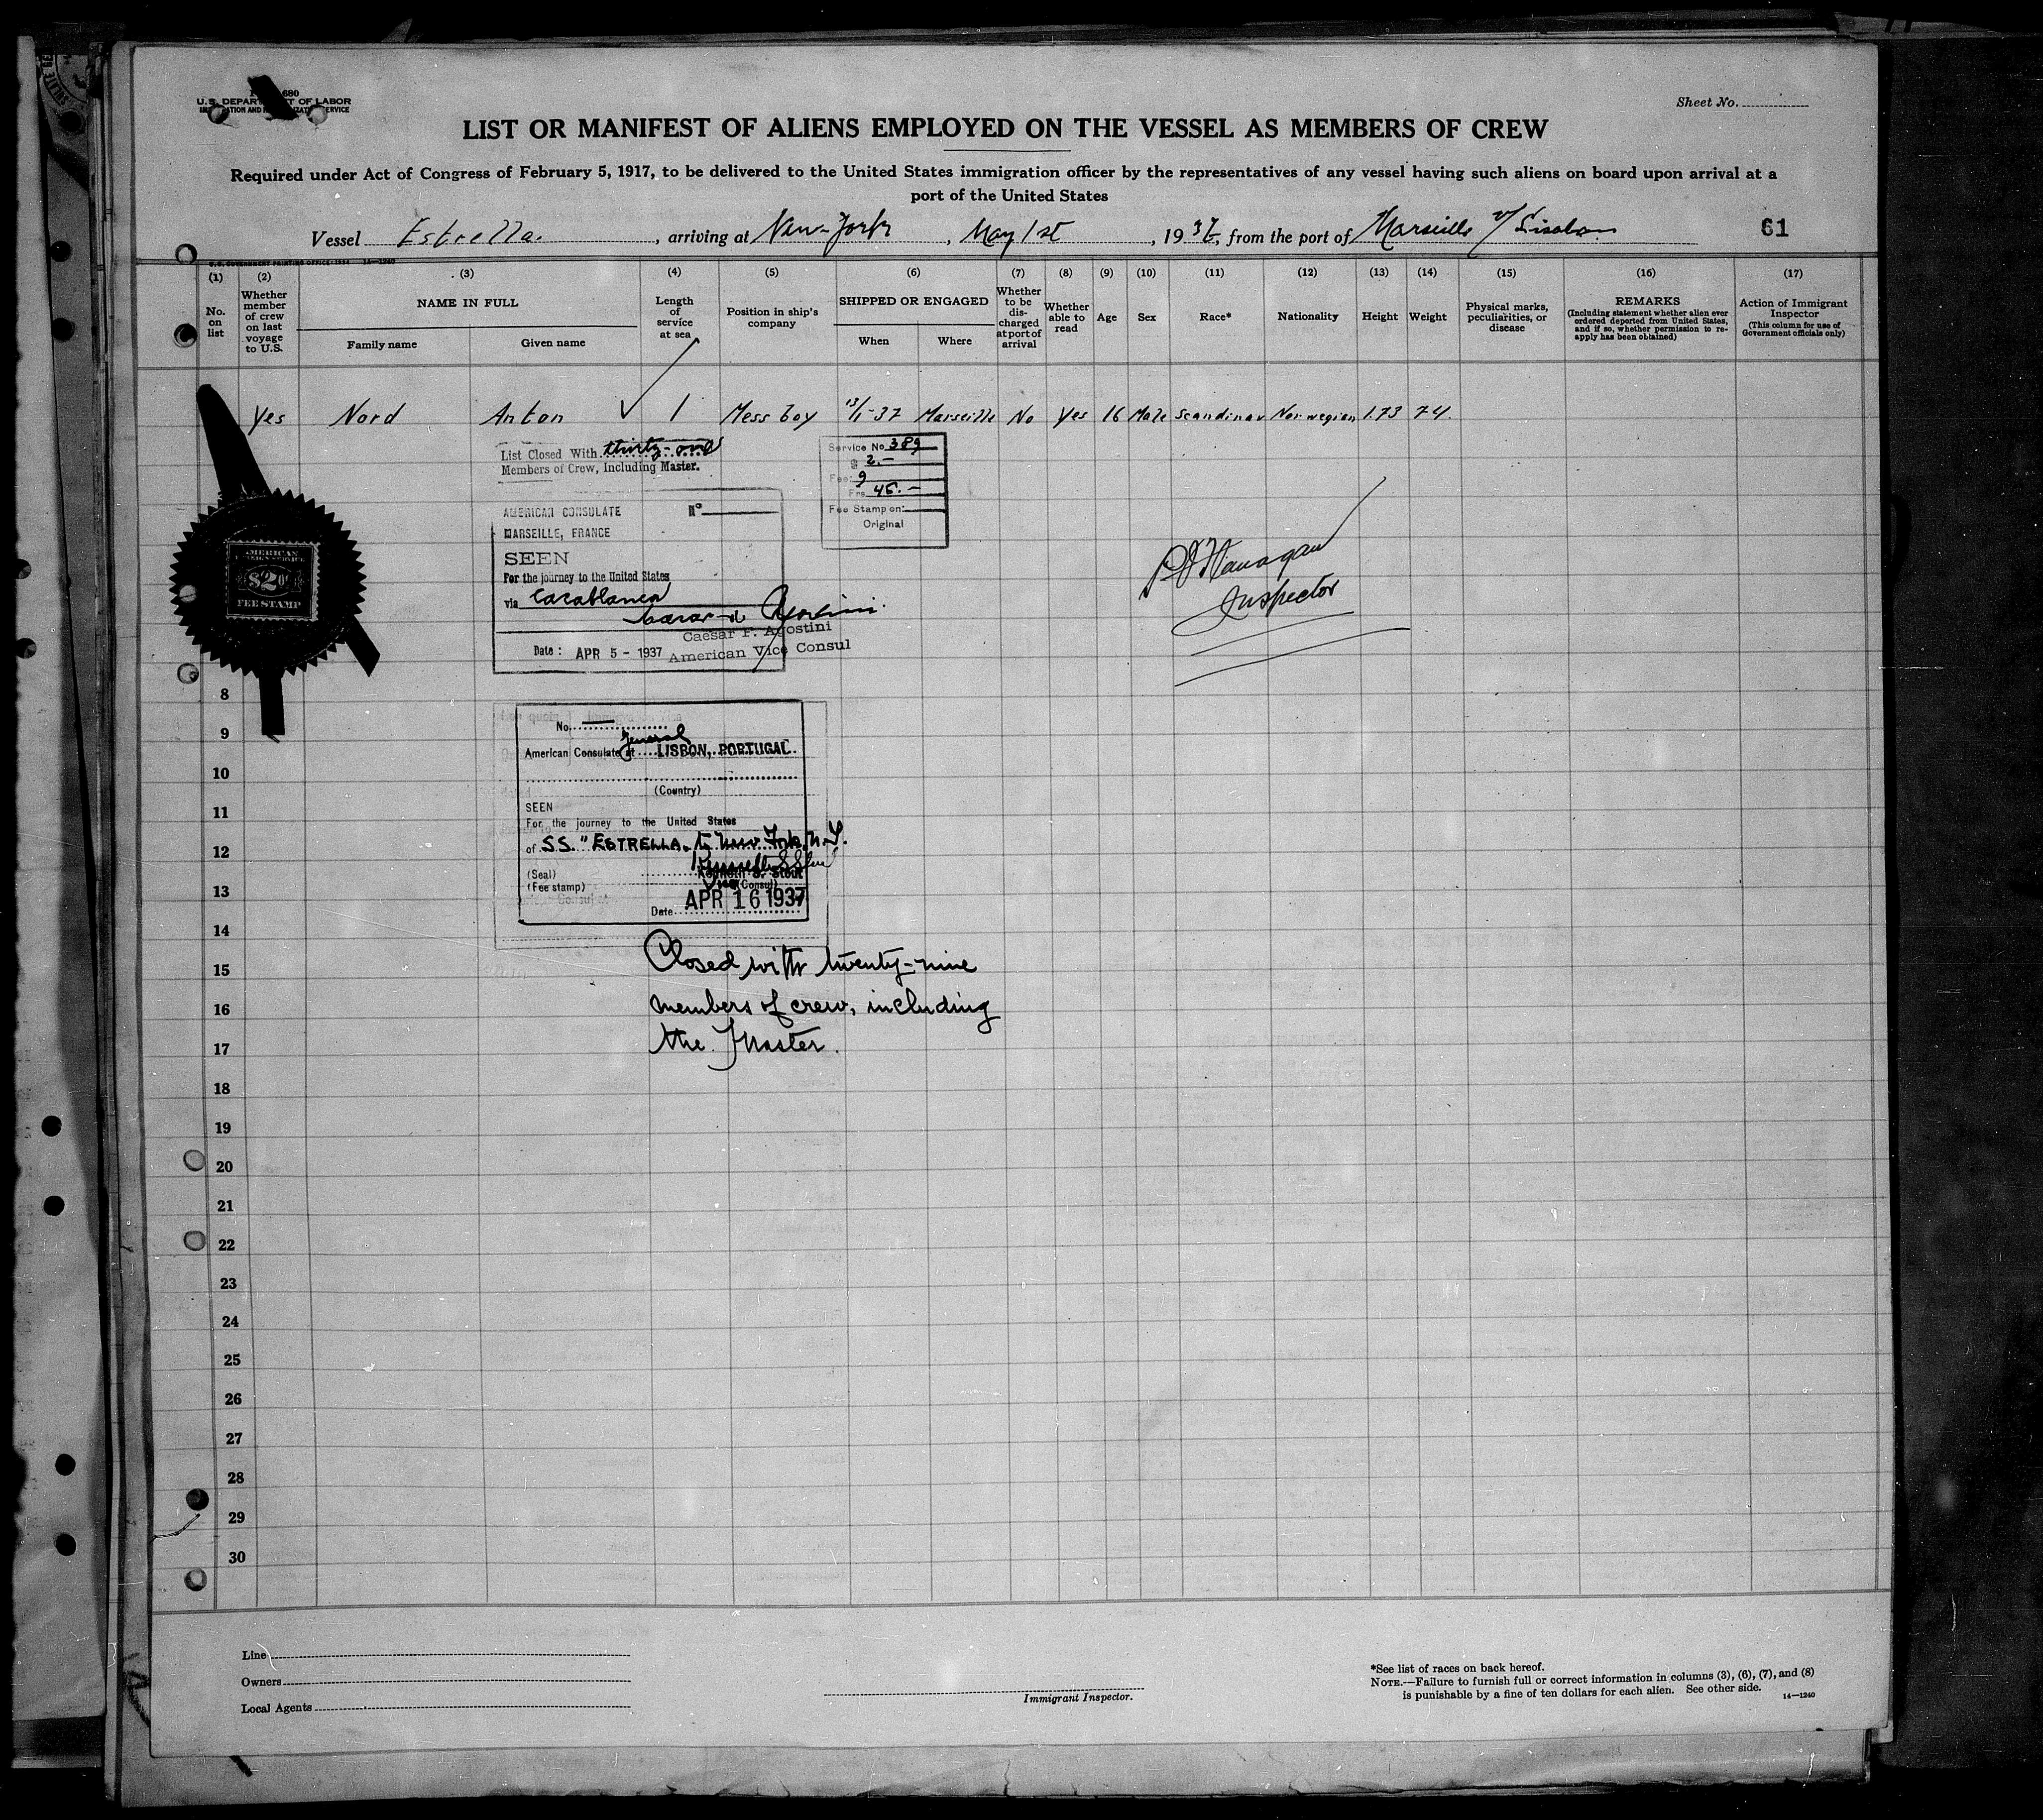 680
U.S. DEPARTMENT OF LABOR
Sheet No.
LIST OR MANIFEST OF ALIENS EMPLOYED ON THE VESSEL AS MEMBERS OF CREW
Required under Act of Congress of February 5, 1917, to be delivered to the United States immigration officer by the representatives of any vessel having such aliens on board upon arrival at a
port of the United States
Vessel Estrella, arriving at New-York, May 1st, 1937, from the port of Marseille v/ Lisabon 61
(1) (2) (3) (4) (5) (6) (7) (8) (9) (10) (11) (12) (13) (14) (15) (16) (17)
No. on list
Whether member of crew on last voyage to U.S.
NAME IN FULL
Family name
Given name
Length of service at sea
Position in ship's company
SHIPPED OR ENGAGED
When
Where
Whether to be discharged at port of arrival
Whether able to read
Age
Sex
Race*
Nationality
Height
Weight
Physical marks, peculiarities, or disease
REMARKS
(Including statement whether alien ever ordered deported from United States, and if so, whether permission to reapply has been obtained)
Action of Immigrant Inspector
(This column for use of Government officials only)
Yes Nord Anton 1 Mess boy 13/1-37 Marseille No Yes 16 Male Scandinav Norwegian 1.73 74.
List Closed With thirty-one
Members of Crew, Including Master.
Service No. 389
$ 2.-
Fee: 9
Frs 45.-
Fee Stamp on:
Original
AMERICAN CONSULATE No
MARSEILLE, FRANCE
SEEN
For the journey to the United States
via Casablanca
Caesar F. Agostini
American Vice Consul
Date: APR 5 - 1937
AMERICAN
FOREIGN SERVICE
$2.00
FEE STAMP
Inspector
No.
American Consulate General at LISBON, PORTUGAL.
(Country)
SEEN
For the journey to the United States
of SS. "ESTRELLA. to New York, N.Y.
(Seal)
(Fee stamp)
Kenneth S. Stout
(Consul)
Date APR 16 1937
Closed with twenty-nine
members of crew, including
the Master.
8
9
10
11
12
13
14
15
16
17
18
19
20
21
22
23
24
25
26
27
28
29
30
Line
Owners
Local Agents
Immigrant Inspector.
*See list of races on back hereof.
NOTE.—Failure to furnish full or correct information in columns (3), (6), (7), and (8)
is punishable by a fine of ten dollars for each alien. See other side.
14—1240